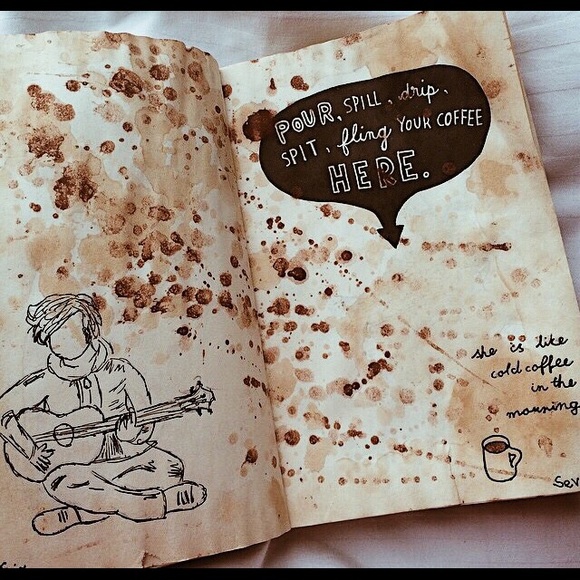 POUR, SPILL, drip,
SPIT, fling YOUR COFFEE
HERE.
she is like
cold coffee
in the
morning